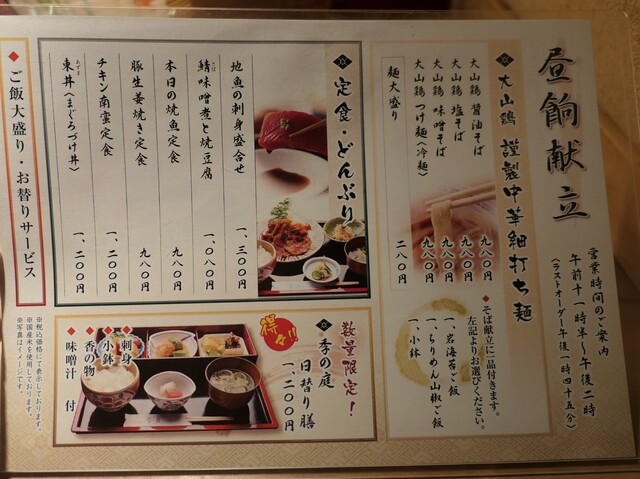 昼餉献立
営業時間のご案内
午前十一時半～午後二時
(ラストオーダー午後一時四十五分)
大山鶏 謹製中華細打ち麺
大山鶏 醤油そば 九八〇円
大山鶏 塩そば 九八〇円
大山鶏 味噌そば 九八〇円
大山鶏 つけ麺〈冷麺〉 九八〇円
麺大盛り 二八〇円
◆そば献立に一品付きます。
左記よりお選びください。
一、岩海苔ご飯
一、ちりめん山椒ご飯
一、小鉢
定食・どんぶり
地魚の刺身盛合せ 一、三〇〇円
鯖味噌煮と焼豆腐 一、〇八〇円
さば
本日の焼魚定食 九八〇円
豚生姜焼き定食 九八〇円
チキン南蛮定食 一、二〇〇円
東丼〈まぐろづけ丼〉 一、二〇〇円
あずま
数量限定！
得々!!
季の庭
日替り膳
一、二〇〇円
刺身
小鉢
香の物
味噌汁 付
◆ご飯大盛り・お替りサービス◆
※税込価格にて表示しております。
※国産米を使用しております。
※写真はイメージです。